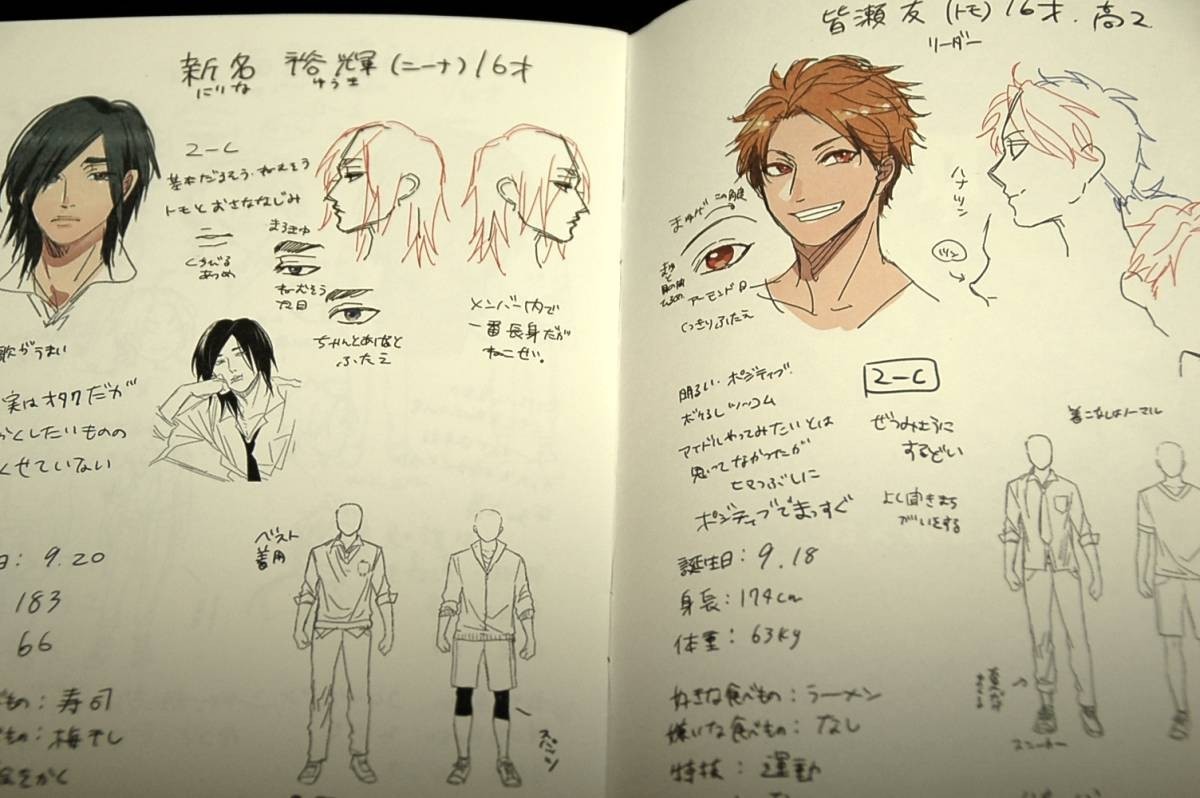 新名 裕輝 (ニーナ) 16才
にいな ゆうき
2-C
基本だるそう・ねむそう
トモとおさななじみ
くちびる
あつめ
ねむそう
な目
ちゃんとあけると
ふたえ
メンバー内で
一番長身だが
ねこぜ。
歌がうまい
実はオタクだが
かくしたいものの
くせていない
ベスト
着用
日: 9.20
183
66
もの: 寿司
もの: 梅干し
スパッツ
皆瀬 友 (トモ) 16才. 高2
リーダー
ハナツン
ツン
アーモンド目
くっきりふたえ
明るい ポジティブ
ボケるしツッコム
アイドルやってみたいとは
思ってなかったが
ヒマつぶしに
ポジティブでまっすぐ
2-C
ぜつみょうに
するどい
よく聞きまち
がいをする
着こなしはノーマル
誕生日: 9.18
身長: 174cm
体重: 63kg
好きな食べもの: ラーメン
嫌いな食べもの: なし
特技: 運動
スニーカー